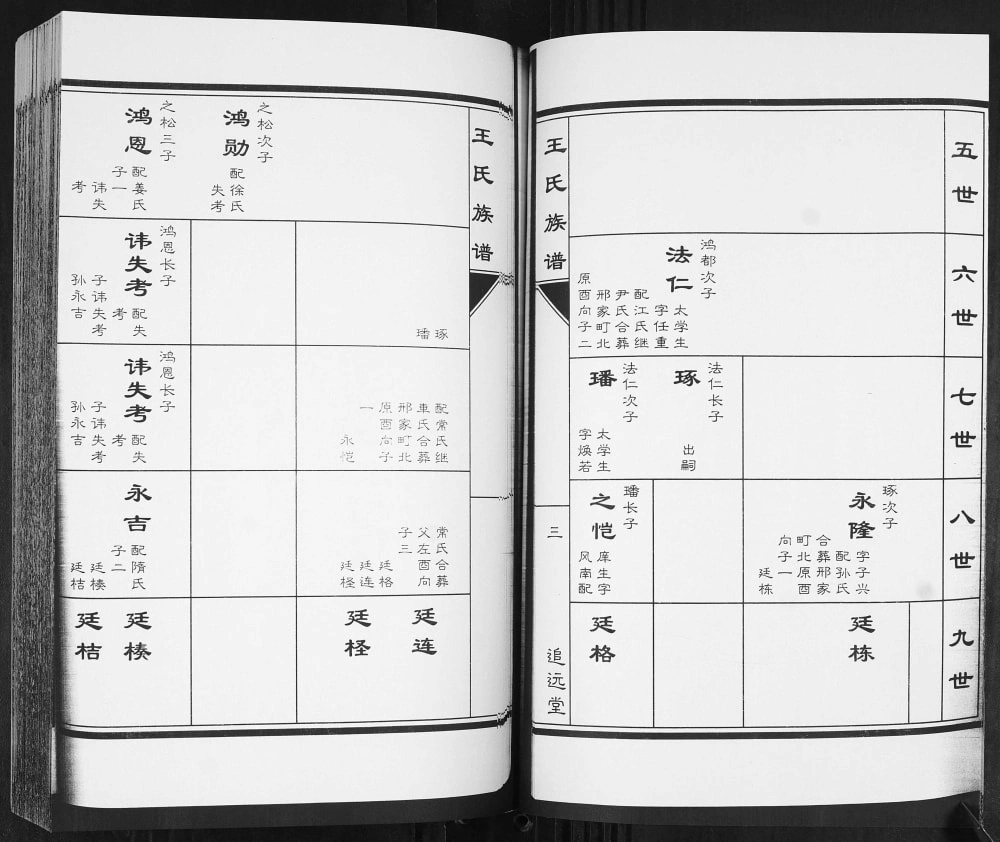 五世
六世
鸿都次子
法仁
太学生
字任重
配江氏继
尹氏合葬
邢家町北
原酉向子二
七世
法仁长子
琢
出嗣
法仁次子
璠
太学生
字焕若
八世
琢次子
永隆
字子兴
配孙氏
合葬邢家
町北原酉
向子一
廷栋
璠长子
之恺
庠生字
风南配
九世
廷栋
廷格
王氏族谱
三
追远堂
王氏族谱
之松次子
鸿勋
配徐氏
失考
之松三子
鸿恩
配姜氏
子一
讳失
考
琢
璠
鸿恩长子
讳失考
配失
考
子讳失考
孙永吉
配常氏继
車氏合葬
邢家町北
原酉向子
一
永恺
鸿恩长子
讳失考
配失
考
子讳失考
孙永吉
常氏合葬
父左酉向
子三
廷格
廷连
廷柽
永吉
配隋氏
子二
廷楱
廷桔
廷连
廷柽
廷楱
廷桔